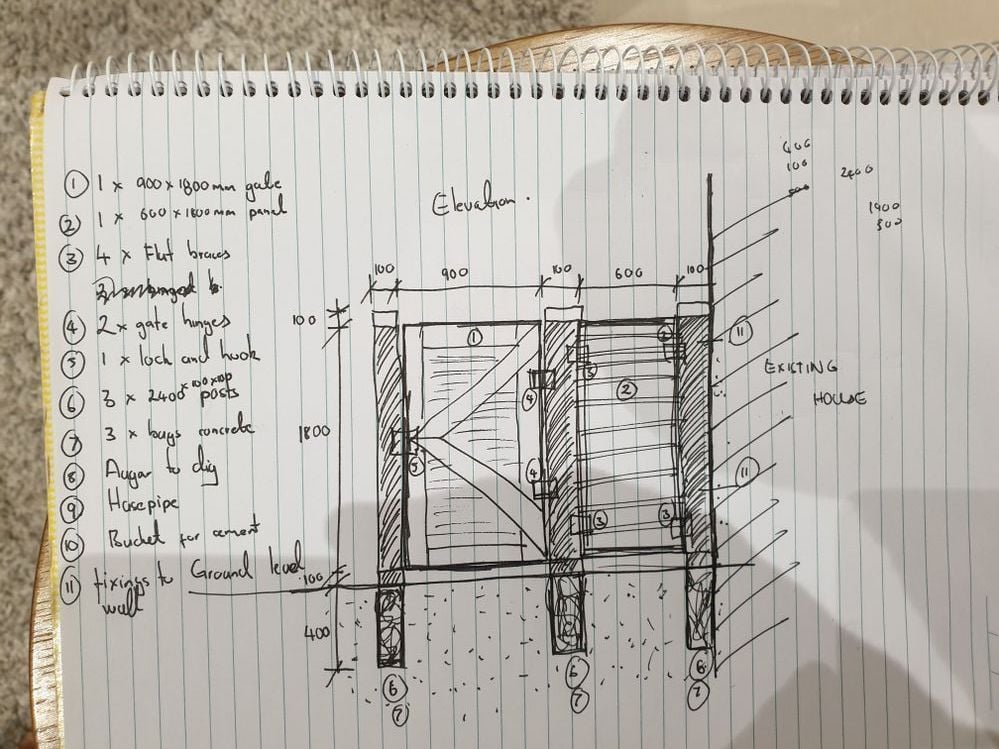 ① 1 x 900 x 1800mm gate
② 1 x 600 x 1800mm panel
③ 4 x Flat braces
④ 2 x gate hinges
⑤ 1 x lock and hook
⑥ 3 x 2400 x 100 x 100 posts
⑦ 3 x bags concrete
⑧ Augar to dig
⑨ Hosepipe
⑩ Bucket for cement
⑪ fixings to wall
Elevation.
400
100
2400
1900
500
100 900 100 600 100
100
1800
100
400
Ground level
①
②
③
③
③
③
④
④
⑤
⑪
⑪
EXISTING
HOUSE
⑥ ⑥ ⑥
⑦ ⑦ ⑦